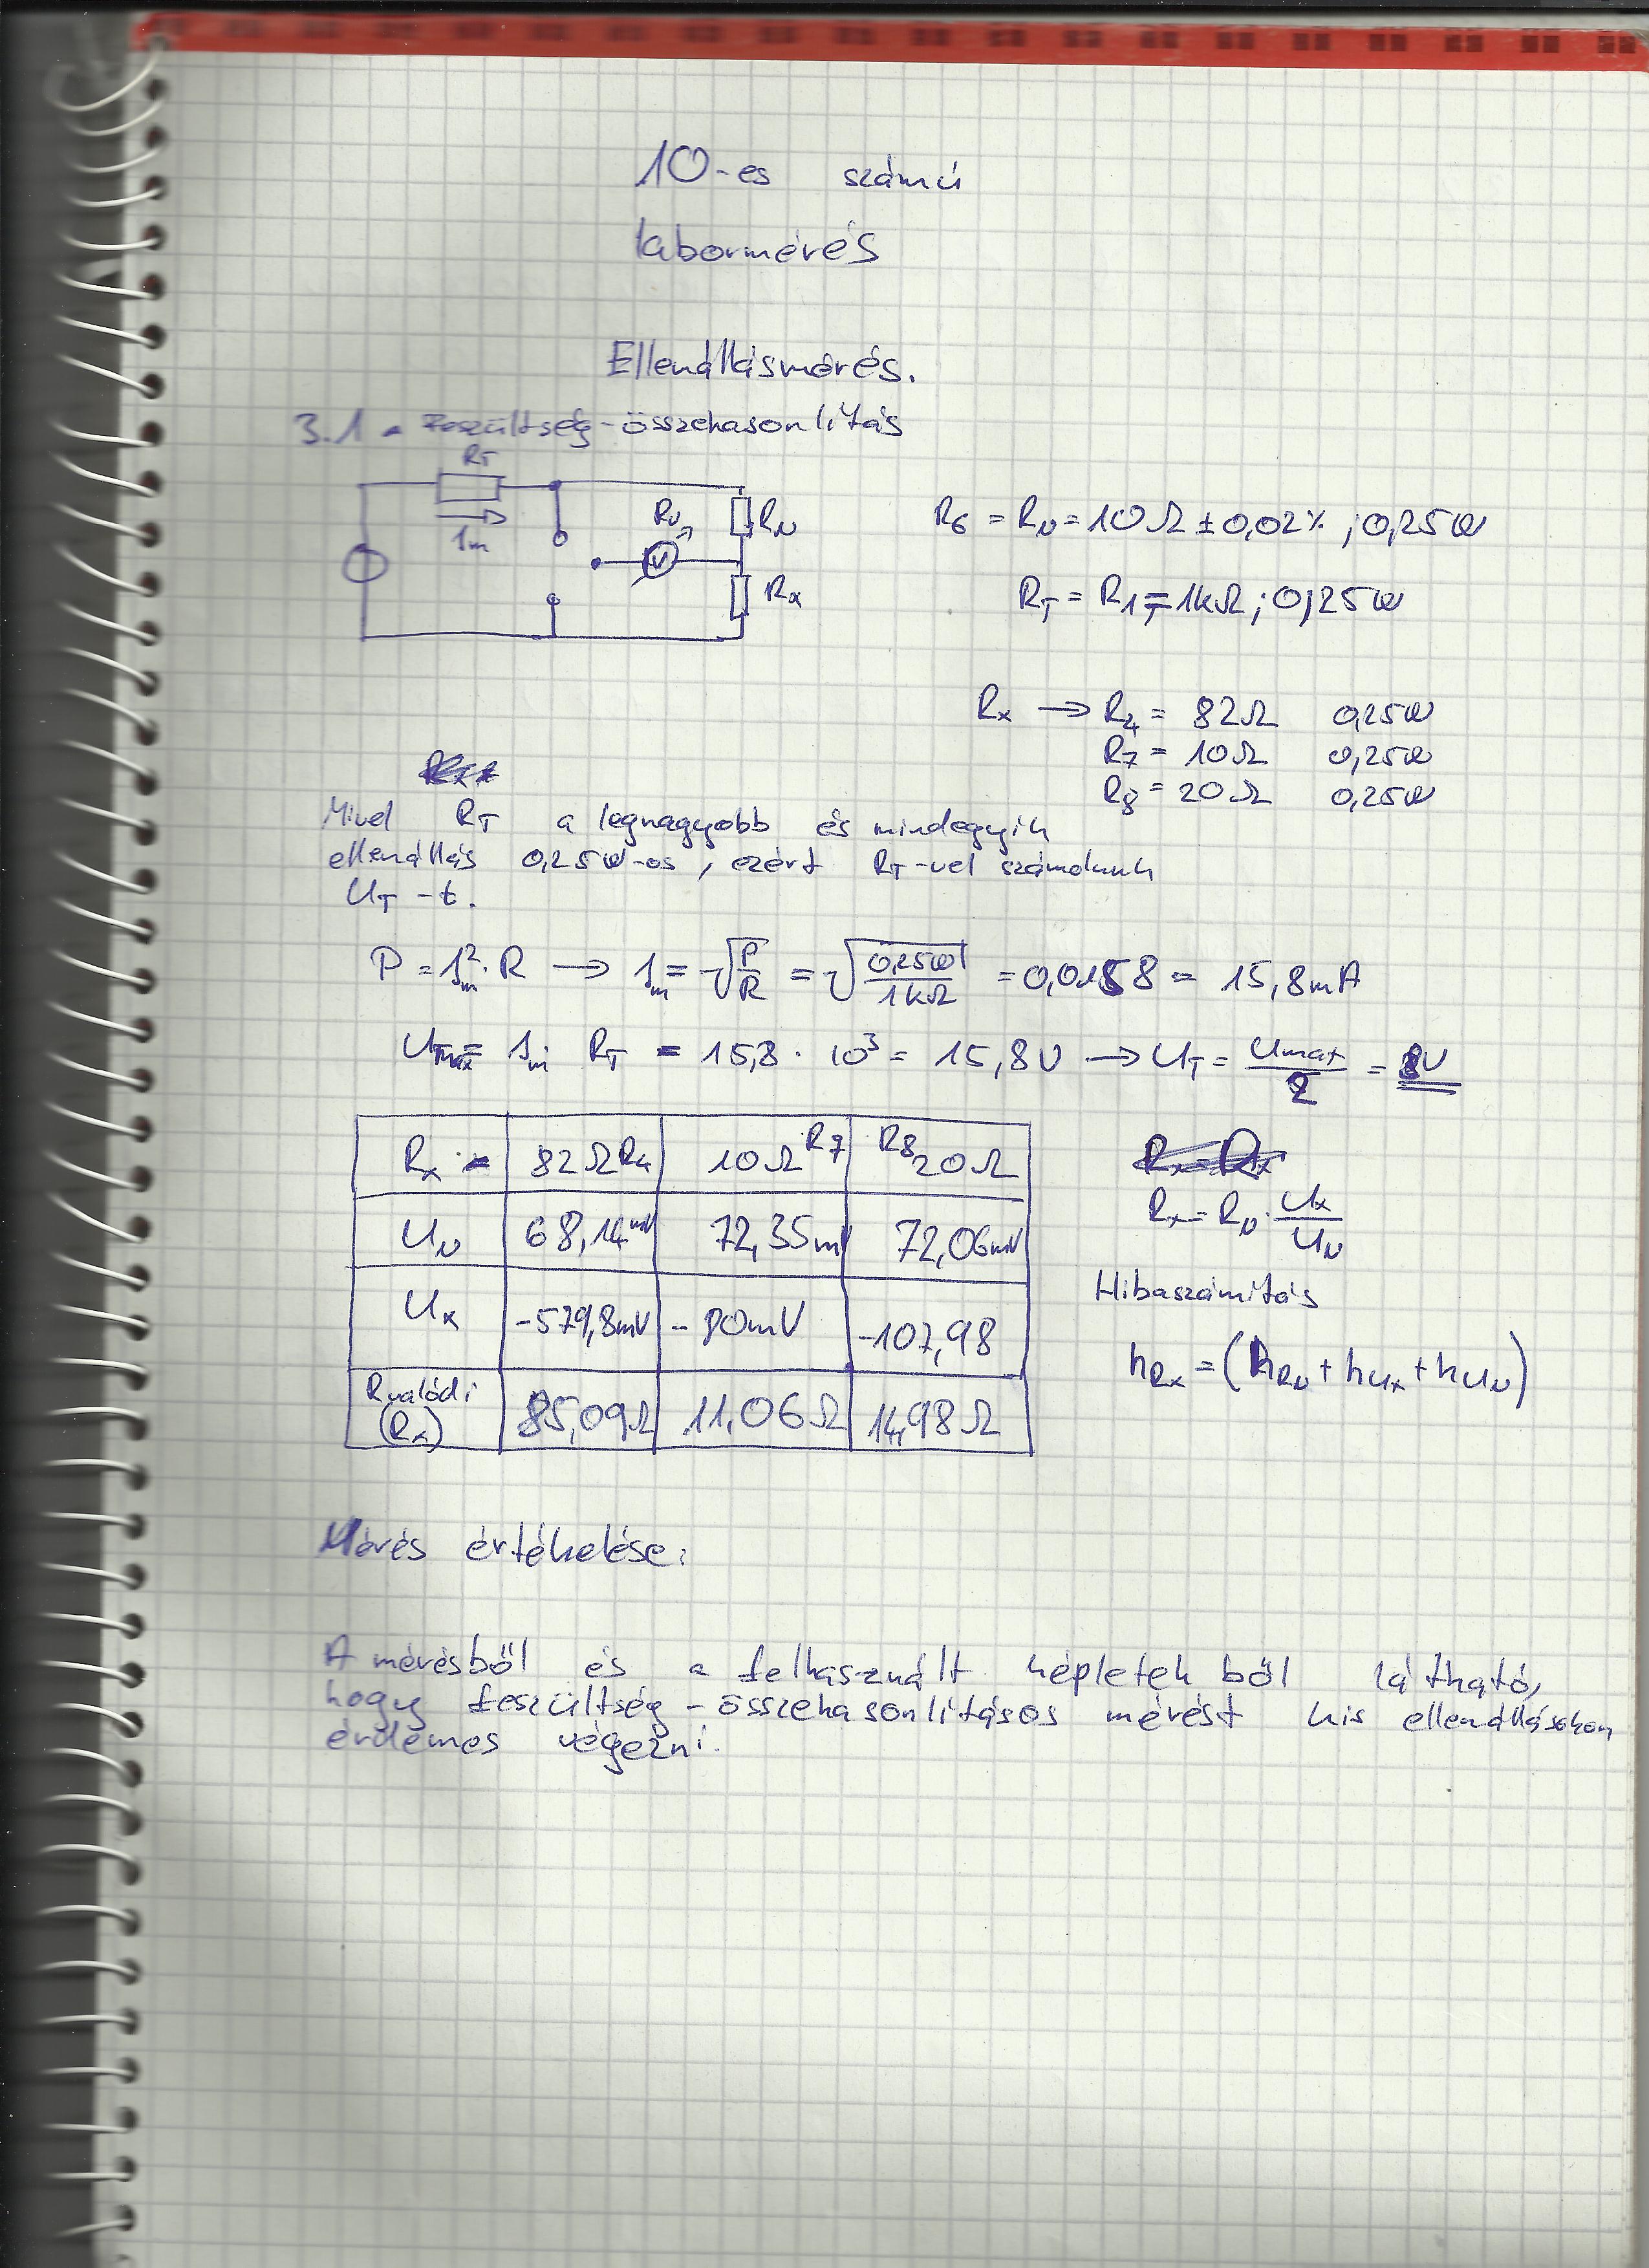 10-es számú
labormérés
Ellenállásmérés.
3.1 Feszültség-összehasonlítás
RT
Im
RV
V
RN
Rx
R6 = RN = 10Ω ± 0,02% ; 0,25W
RT = R1 = 1kΩ ; 0,25W
Rx → R4 = 82Ω 0,25W
R7 = 10Ω 0,25W
R8 = 20Ω 0,25W
Mivel RT a legnagyobb és mindegyik
ellenállás 0,25W-os, ezért RT-vel számolunk
UT -t.
P = Im² · R → Im = √(P/R) = √(0,25W/1kΩ) = 0,0158 = 15,8mA
UTmax = Im · RT = 15,8 · 10³ = 15,8V → UT = Umax/2 = 8V
Rx 82Ω R4 10Ω R7 R8 20Ω
UN 68,14mV 72,35mV 72,06mV
Ux -579,8mV -80mV -107,98
Rvalódi (Rx) 85,09Ω 11,06Ω 14,98Ω
Rx = RN · Ux/UN
Hibaszámítás
hRx = (hRN + hUx + hUN)
Mérés értékelése:
A mérésből és a felhasznált képletek ből látható,
hogy feszültség-összehasonlításos mérést kis ellenállásokon
érdemes végezni.